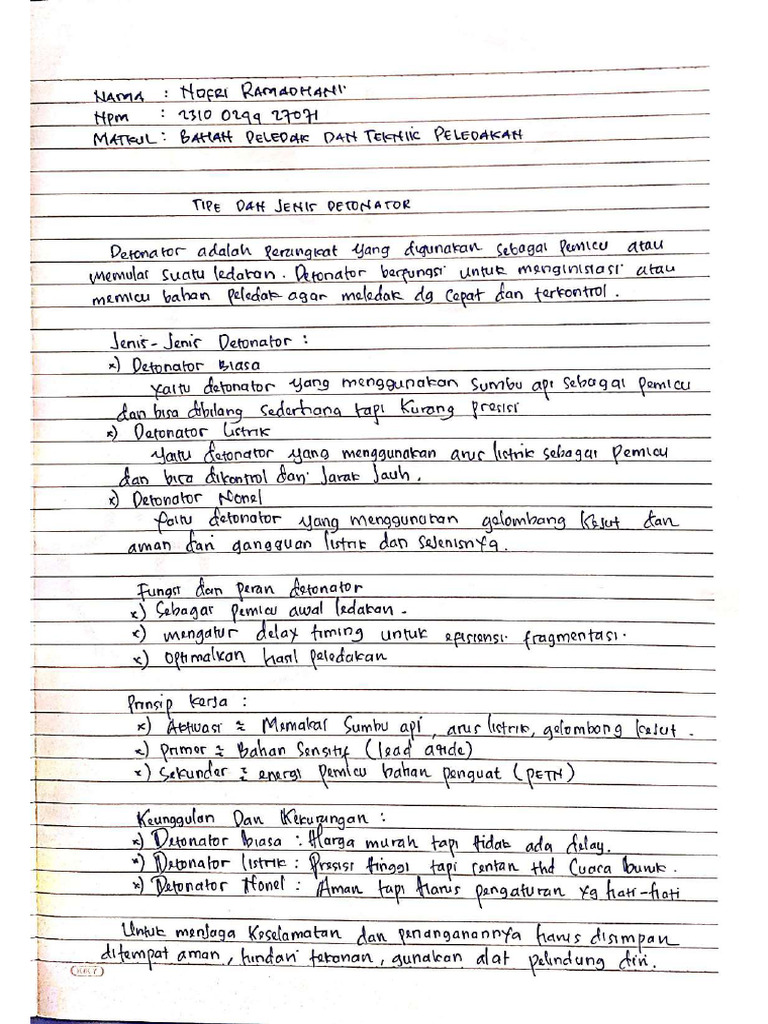 NAMA : NOFRI RAMADHANI
NPM : 2310 0299 27071
MATKUL : BAHAN PELEDAK DAN TEKNIK PELEDAKAN
TIPE DAN JENIS DETONATOR
Detonator adalah perangkat yang digunakan sebagai pemicu atau
memulai suatu ledakan. Detonator berfungsi untuk menginisiasi atau
memicu bahan peledak agar meledak dg cepat dan terkontrol.
Jenis-Jenis Detonator :
*) Detonator Biasa
Yaitu detonator yang menggunakan sumbu api sebagai pemicu
dan bisa dibilang sederhana tapi kurang presisi
*) Detonator Listrik
Yaitu detonator yang menggunakan arus listrik sebagai pemicu
dan bisa dikontrol dari jarak jauh.
*) Detonator Nonel
Yaitu detonator yang menggunakan gelombang kejut dan
aman dari gangguan listrik dan sejenisnya.
Fungsi dan peran detonator
*) Sebagai pemicu awal ledakan.
*) mengatur delay timing untuk efisiensi fragmentasi.
*) Optimalkan hasil peledakan
Prinsip kerja :
*) Aktivasi = Memakai Sumbu api, arus listrik, gelombang kejut.
*) Primer = Bahan Sensitif (lead azide)
*) Sekunder = energi pemicu bahan penguat (PETN)
Keunggulan Dan Kekurangan :
*) Detonator biasa : Harga murah tapi tidak ada delay.
*) Detonator listrik : Presisi tinggi tapi rentan thd Cuaca buruk.
*) Detonator Nonel : Aman tapi harus pengaturan yg hati-hati
Untuk menjaga keselamatan dan penanganannya harus disimpan
ditempat aman, hindari tekanan, gunakan alat pelindung diri.